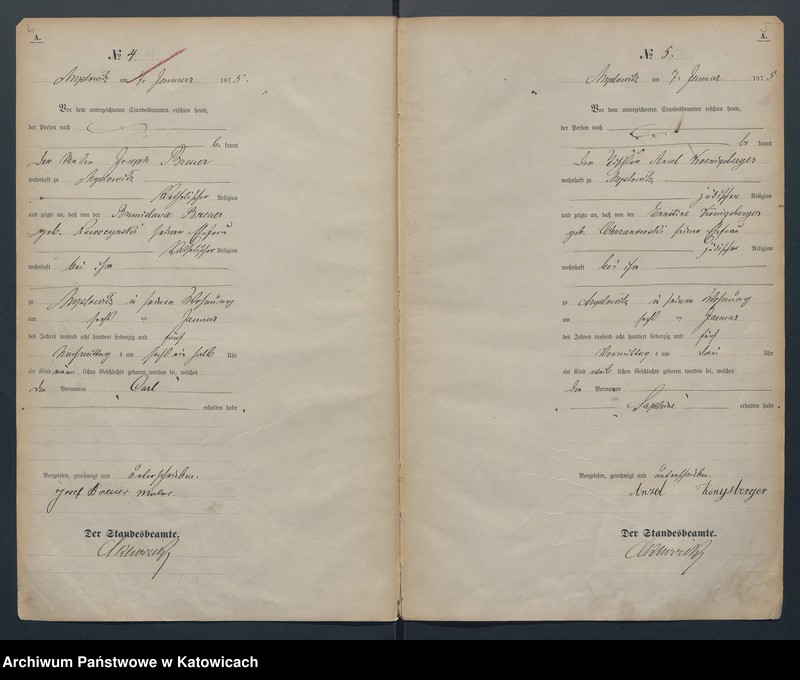 A.
№ 4.
Myslowitz am 7. Januar 1875.
Vor dem unterzeichneten Standesbeamten erschien heute,
der Person nach
be kannt
den Maler Joseph Breuer
wohnhaft zu Myslowitz
Katholischer Religion
und zeigte an, daß von der Bronislava Breuer
geb. seiner Ehefrau
Katholischer Religion
wohnhaft bei ihm
zu Myslowitz in seiner Wohnung
am sechs ten Januar
des Jahres tausend acht hundert siebenzig und fünf
Nachmittag s um sechs ein halb Uhr
ein Kind männ lichen Geschlechts geboren worden sei, welches
den Vornamen Carl
erhalten habe.
Vorgelesen, genehmigt und unterschrieben.
Josef Breuer Maler.
Der Standesbeamte.
A.
№ 5.
Myslowitz am 7. Januar 1875
Vor dem unterzeichneten Standesbeamten erschien heute,
der Person nach
be kannt
der Ansel Koenigsberger
wohnhaft zu Myslowitz
jüdischer Religion
und zeigte an, daß von der Ernestine Königsberger
geb. seiner Ehefrau
jüdischer Religion
wohnhaft bei ihm
zu Myslowitz in seiner Wohnung
am sechs ten Januar
des Jahres tausend acht hundert siebenzig und fünf
Vormittag s um drei Uhr
ein Kind weib lichen Geschlechts geboren worden sei, welches
den Vornamen
erhalten habe.
Vorgelesen, genehmigt und unterschrieben.
Anzel Königsberger
Der Standesbeamte.
Archiwum Państwowe w Katowicach